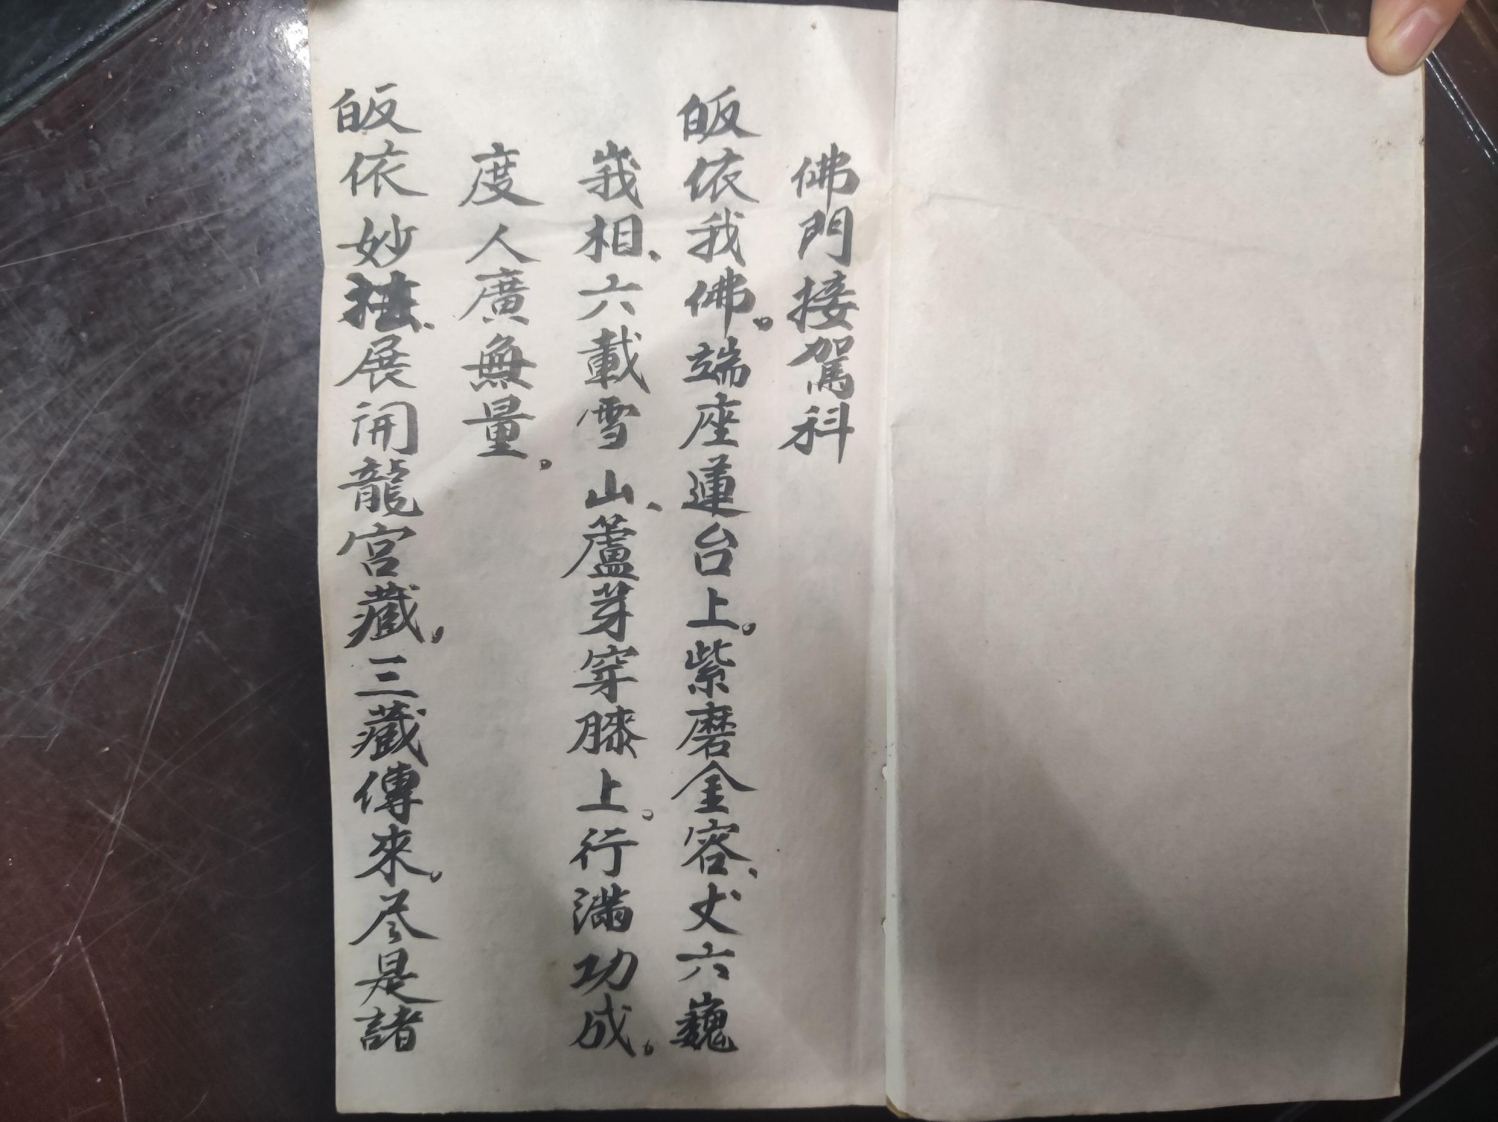 佛門接駕科
皈依我佛。端座蓮台上。紫磨金容、丈六巍
峩相、六載雪山、蘆芽穿膝上。行滿功成。
度人廣無量。
皈依妙法、展開龍宮藏。三藏傳來。尽是諸